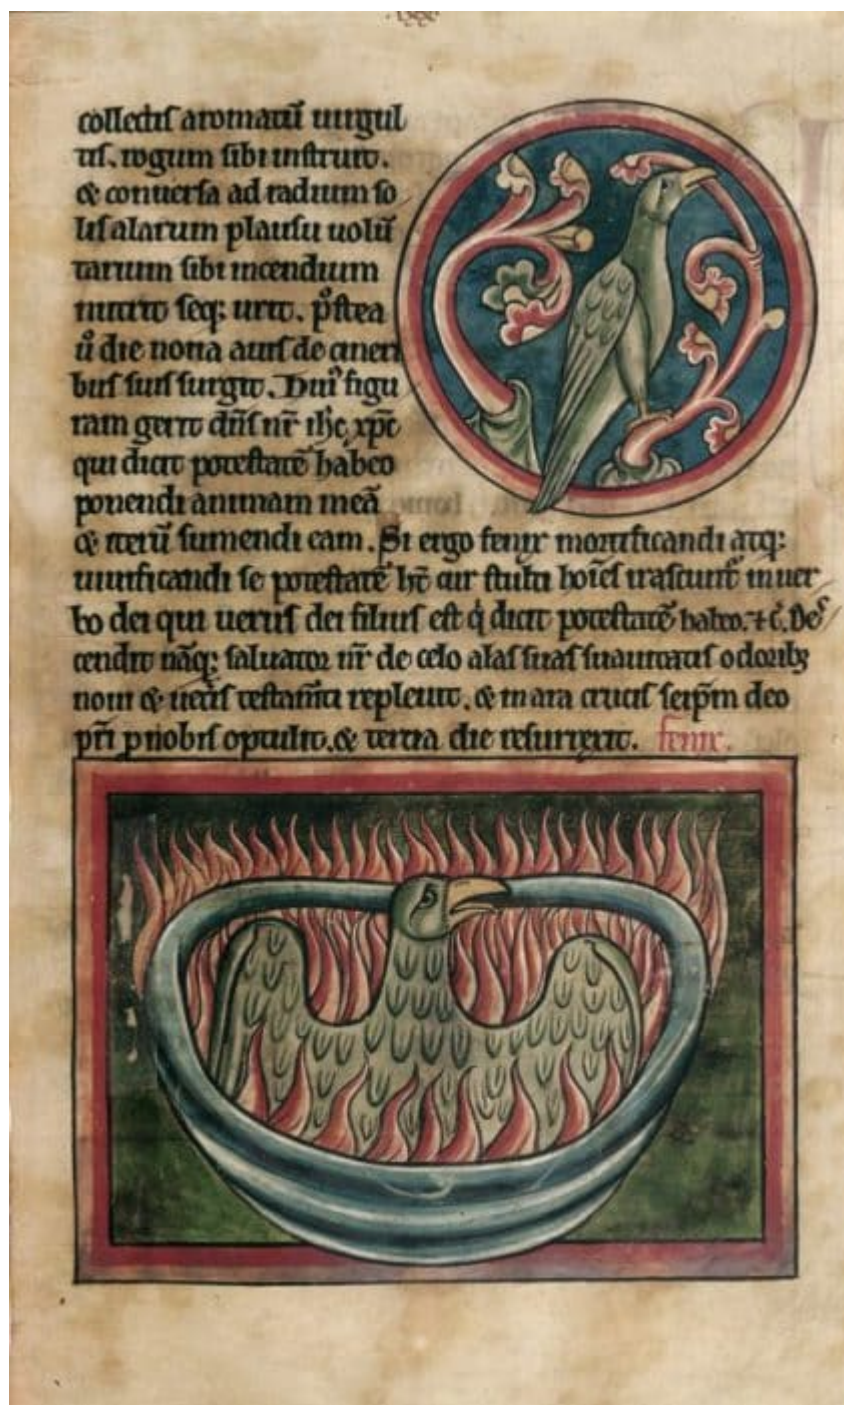 collectis aromatū uirgul
tis. rogum sibi instruit.
& conuersa ad radium so
lis alarum plausu uolū
tarium sibi incendium
nutrit seq; urit. p̊stea
ů die nona auis de cineri
bus suis surgit. Huiꝰ figu
ram gerit dn̄s nr̄ ih̄c xp̄c
qui dicit potestatē habeo
ponendi animam meā
& iterū sumendi eam. Si ergo fenix mortificandi atq;
uiuificandi se potestatē h̄t cur stulti hoīes irascunt᷑ in uer
bo dei qui uerus dei filius est q̇ dicit potestatē habeo. ⁊ c̄. Des
cendit nāq; saluator nr̄ de celo alas suas suauitatis odoribꝫ
noui & uet̄is testam̄ti repleuit. & in ara crucis seip̄m deo
pr̄i p nobis optulit. & tertia die resurrexit. fenix.